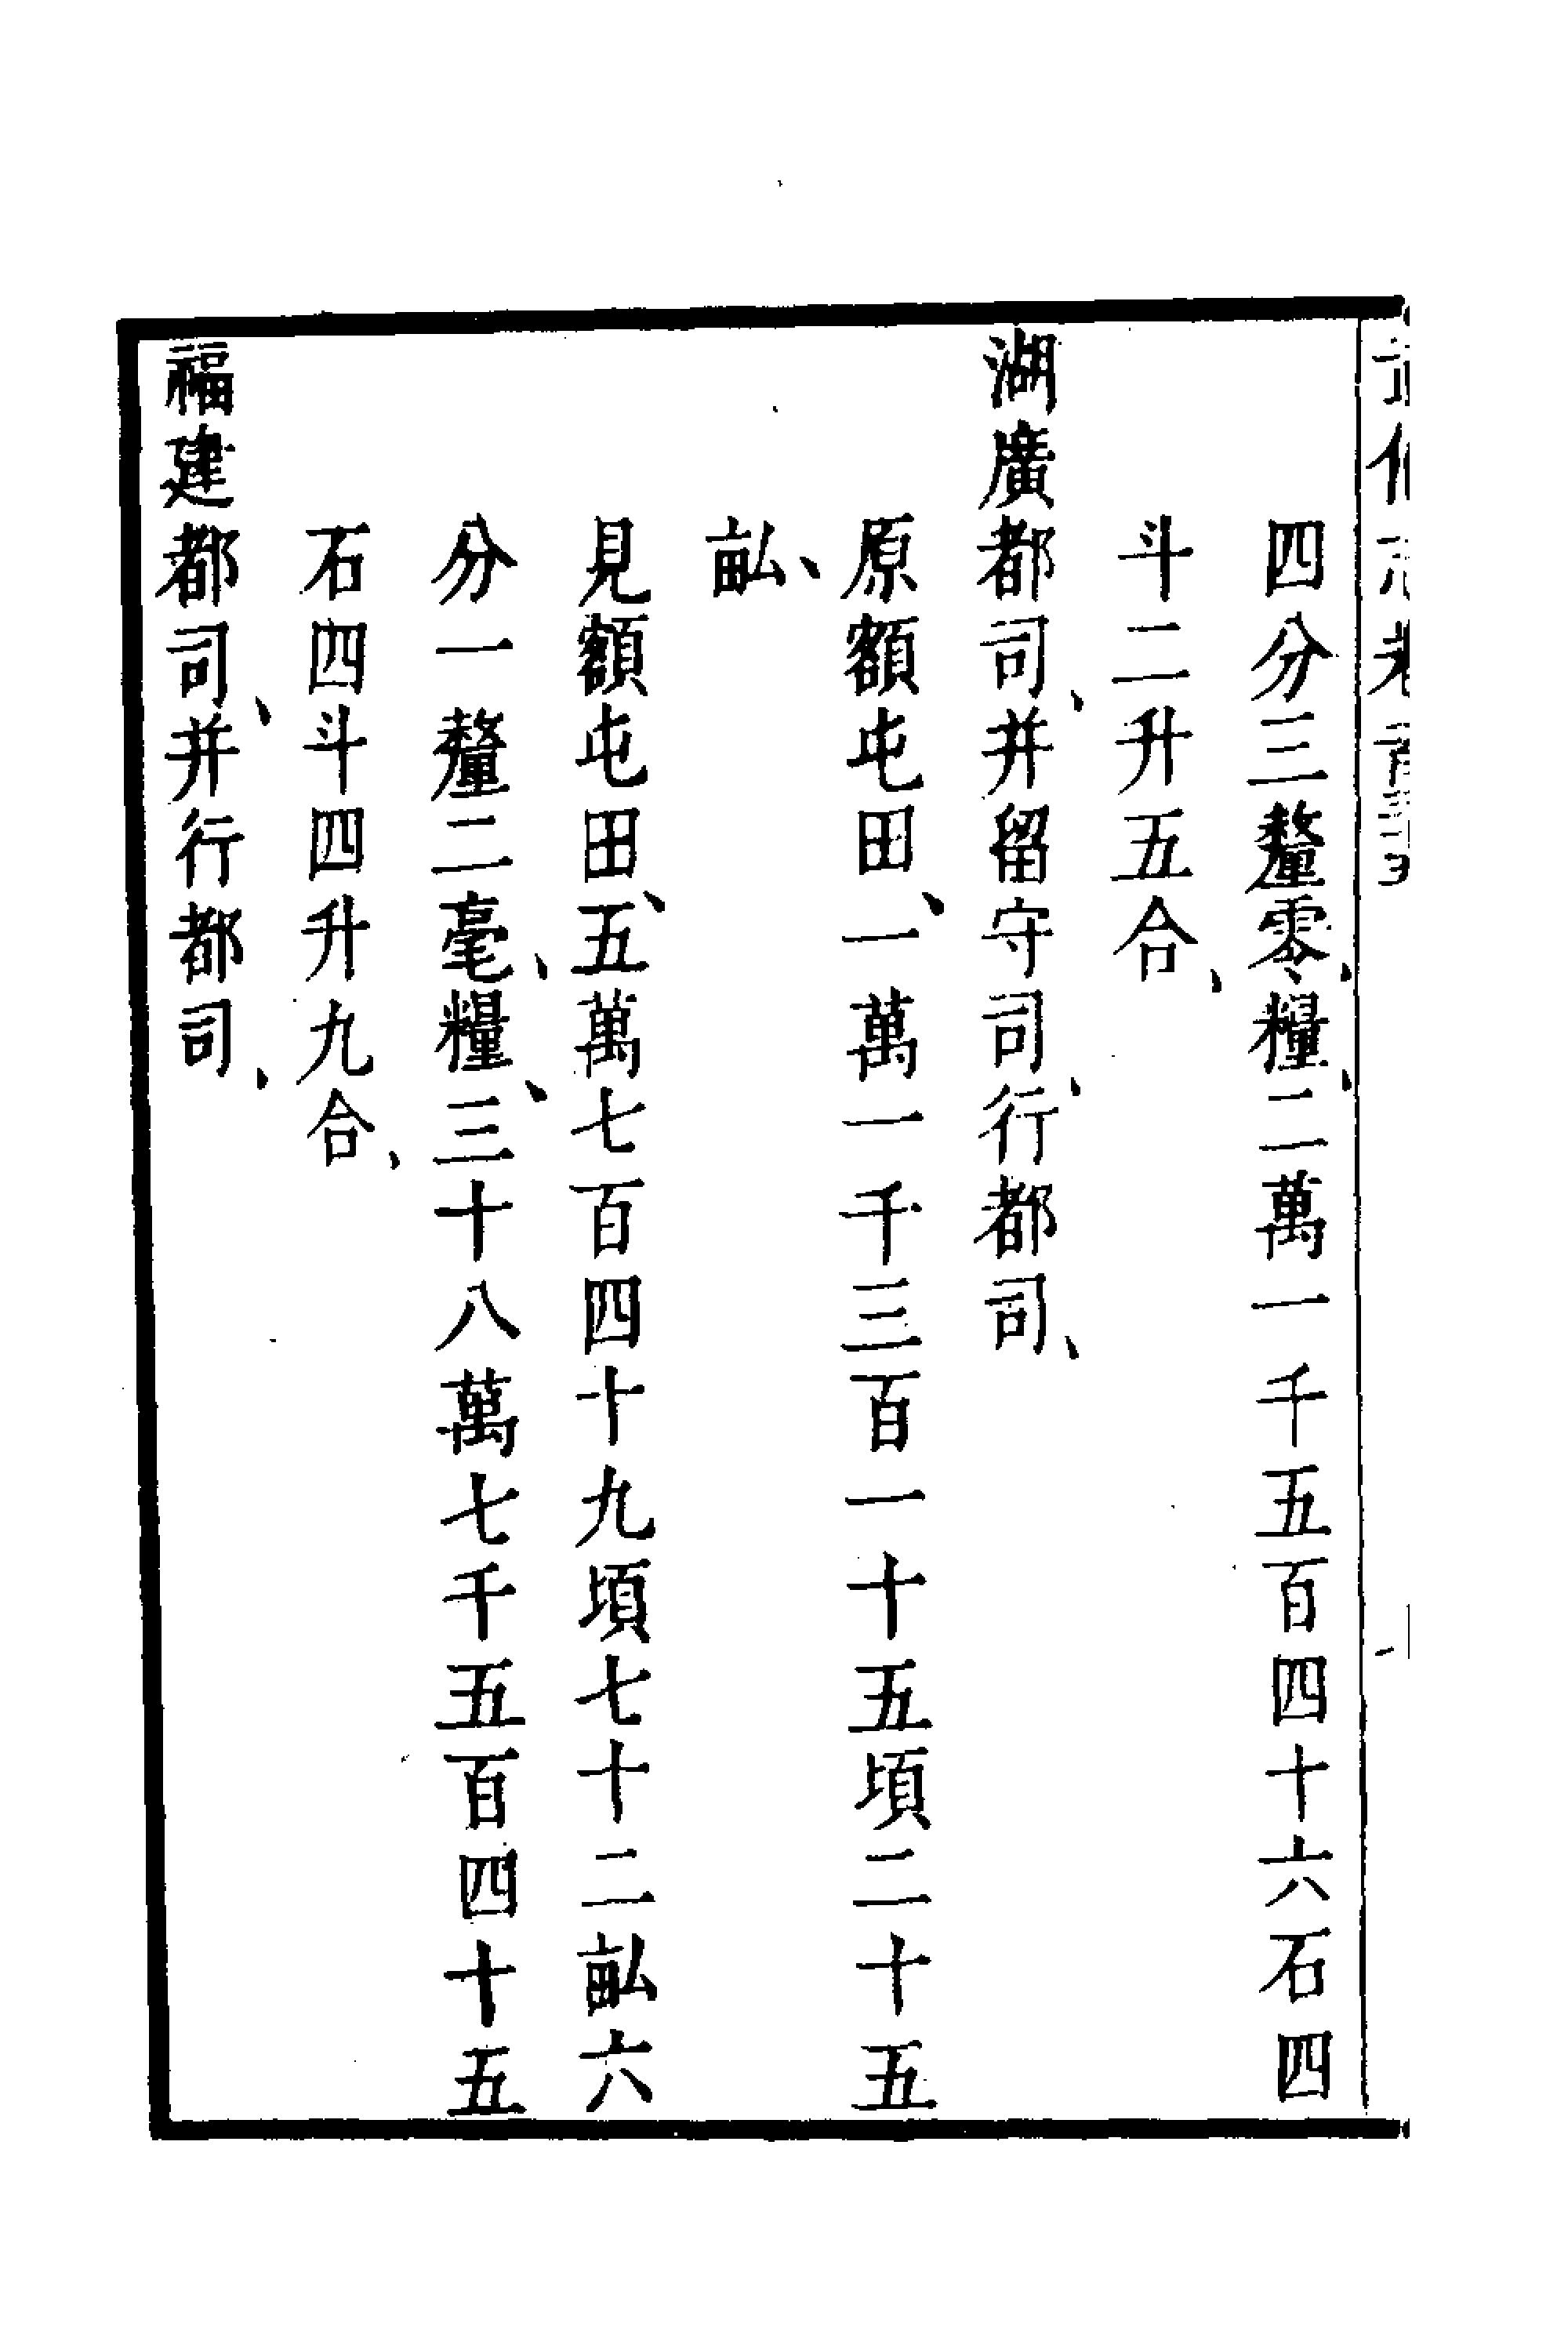 四分三釐零、糧、二萬一千五百四十六石四
斗二升五合、
湖廣都司、并留守司、行都司、
原額屯田、一萬一千三百一十五頃二十五
畝、
見額屯田、五萬七百四十九頃七十二畝六
分一釐二毫、糧、三十八萬七千五百四十五
石四斗四升九合、
福建都司、并行都司、